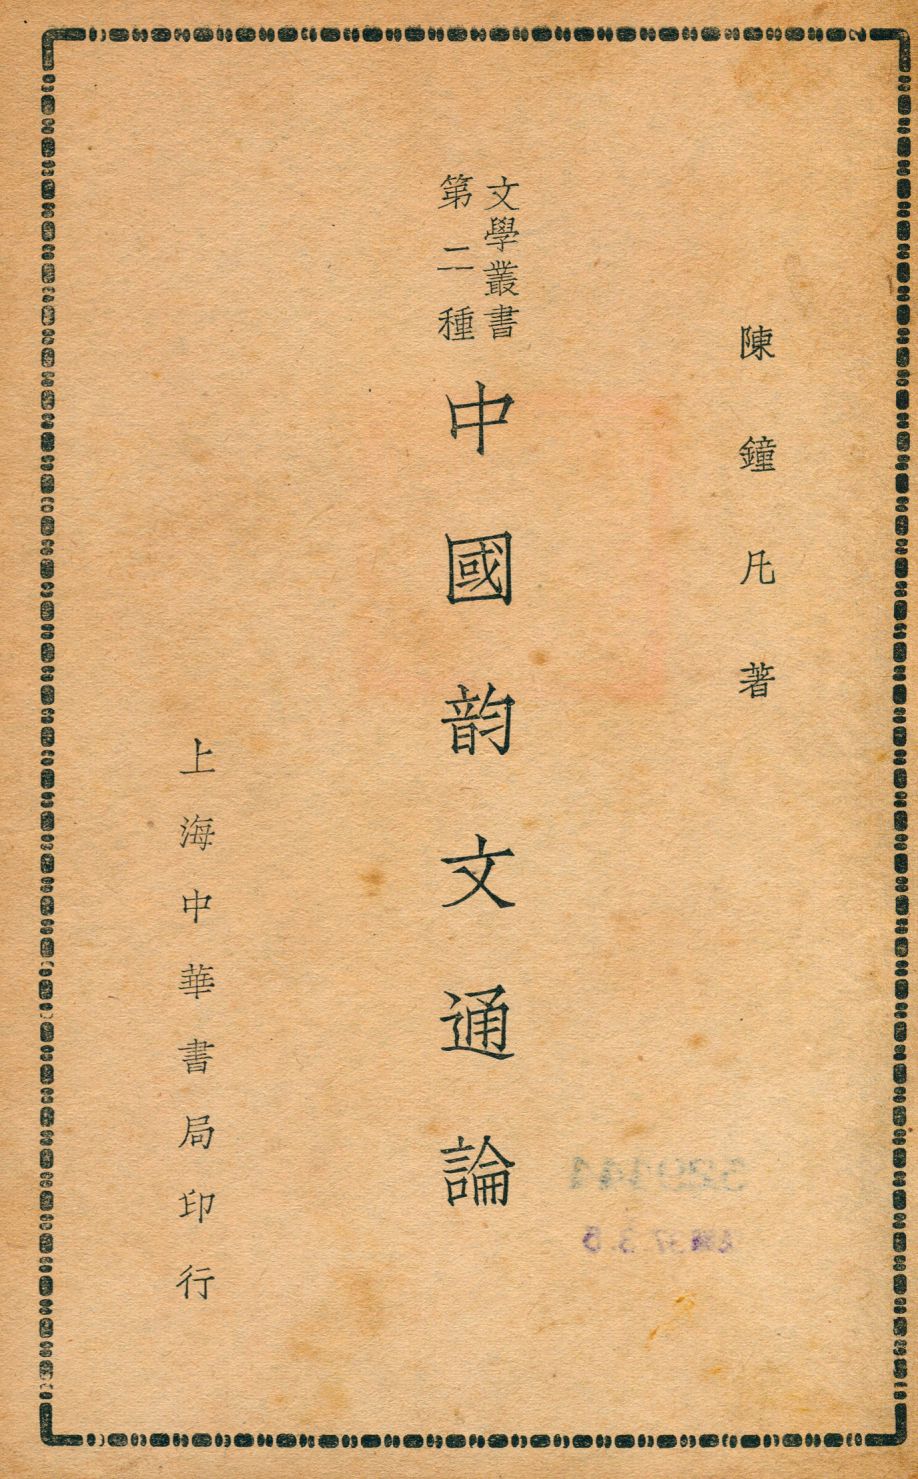 陳鐘凡著
文學叢書
第二種
中國韵文通論
上海中華書局印行